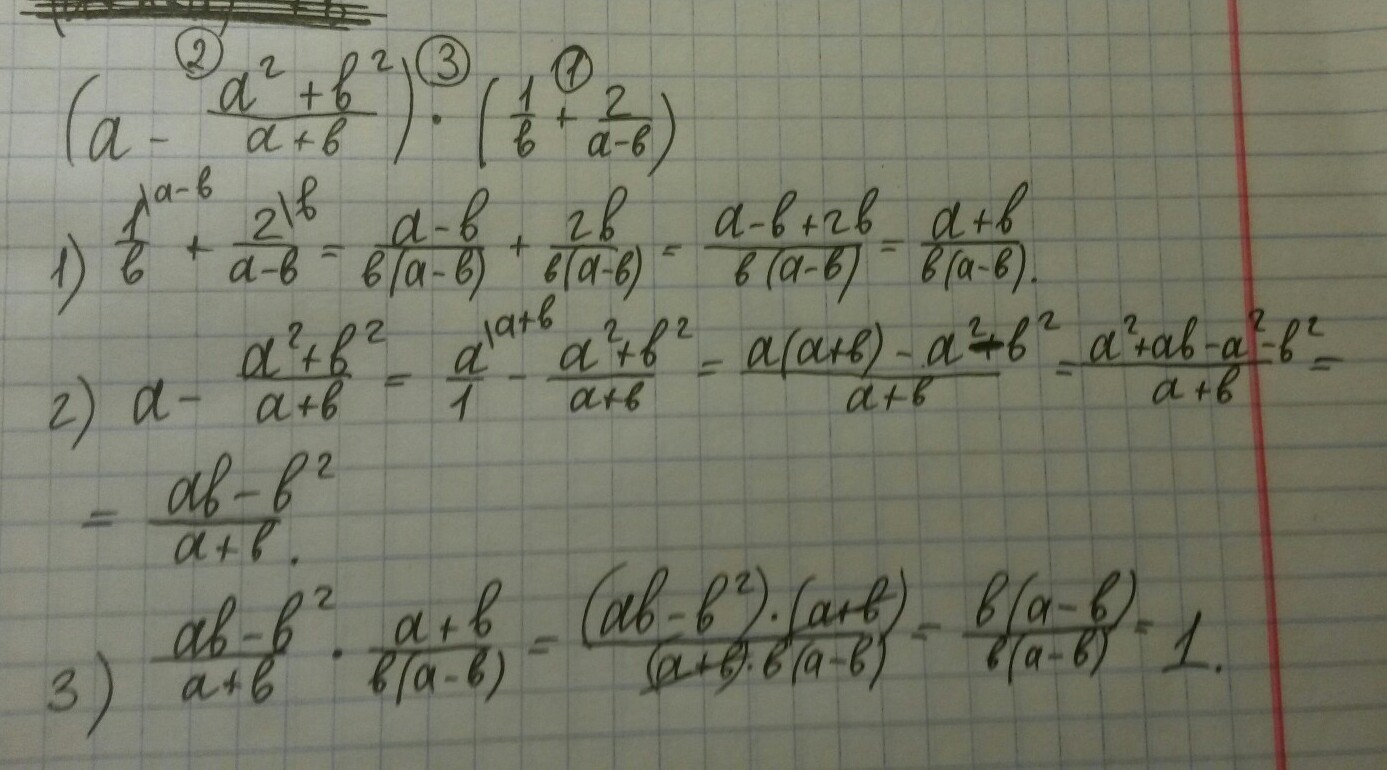 ② ③ ①
(a - (a² + b²)/(a + b)) · (1/b + 2/(a-b))
1) 1\a-b/b + 2\b/(a-b) = (a-b)/(b(a-b)) + 2b/(b(a-b)) = (a-b+2b)/(b(a-b)) = (a+b)/(b(a-b)).
2) a - (a²+b²)/(a+b) = a\a+b/1 - (a²+b²)/(a+b) = (a(a+b) - a² - b²)/(a+b) = (a²+ab-a²-b²)/(a+b) =
= (ab-b²)/(a+b).
3) (ab-b²)/(a+b) · (a+b)/(b(a-b)) = ((ab-b²)·(a+b))/((a+b)·b(a-b)) = (b(a-b))/(b(a-b)) = 1.